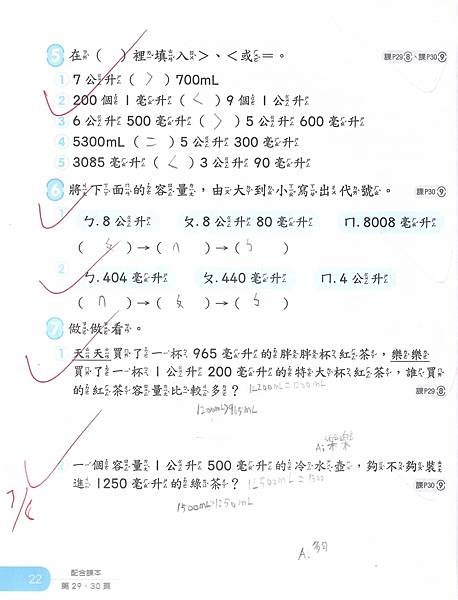 5 在（ ）裡填入＞、＜或＝。 課P29⑧、課P30⑨
1 7公升（ > ）700mL
2 200個1毫升（ < ）9個1公升
3 6公升500毫升（ > ）5公升600毫升
4 5300mL（ = ）5公升300毫升
5 3085毫升（ < ）3公升90毫升
6 將下面的容量，由大到小寫出代號。 課P30⑨
1 ㄅ.8公升 ㄆ.8公升80毫升 ㄇ.8008毫升
（ ㄆ ）→（ ㄇ ）→（ ㄅ ）
2 ㄅ.404毫升 ㄆ.440毫升 ㄇ.4公升
（ ㄇ ）→（ ㄆ ）→（ ㄅ ）
7 做做看。
1 天天買了一杯965毫升的胖胖杯紅茶，樂樂
買了一杯1公升200毫升的特大杯紅茶，誰買
的紅茶容量比較多？ 課P29⑧
1200mL>965mL
A:樂樂
一個容量1公升500毫升的冷水壺，夠不夠裝
進1250毫升的綠茶？ 1L500mL=1500 課P30⑨
1500mL>1250mL
A.夠
22 配合課本
第29、30頁